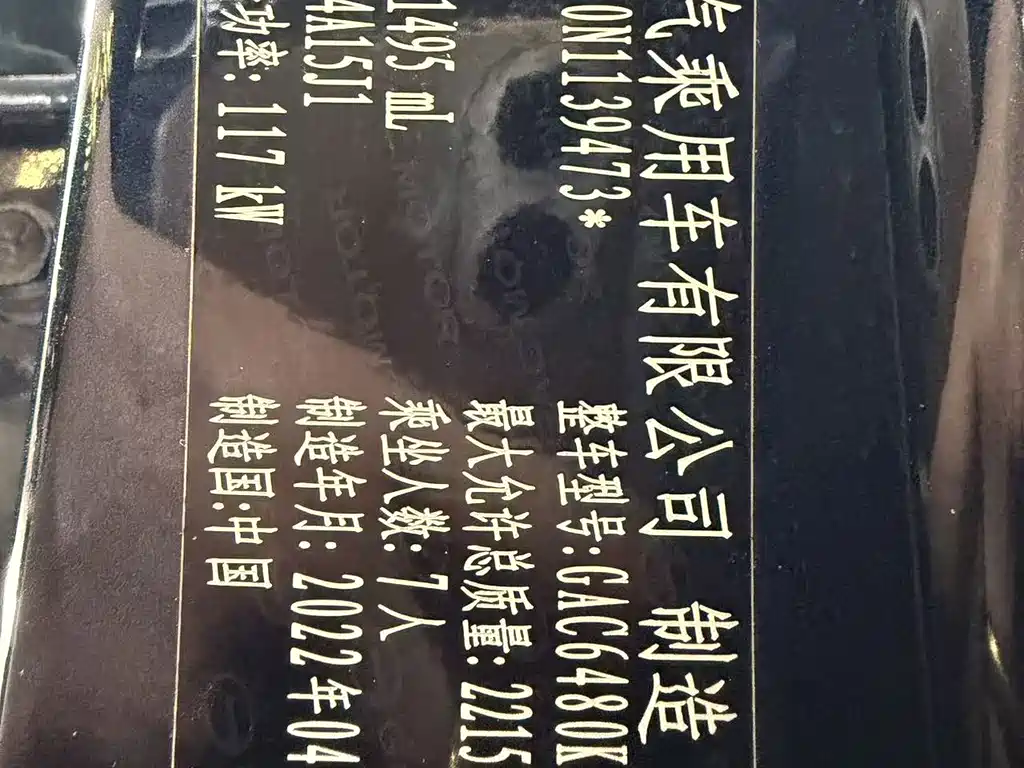 汽乘用车有限公司 制造
0N139473* 整车型号:GAC6480K
最大允许总质量:2215
1495 mL 乘坐人数:7人
4A15J1 制造年月:2022年04
功率:117 kW 制造国:中国